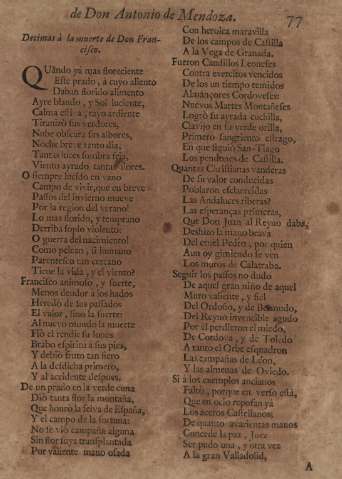 de Don Antonio de Mendoza. 77
Decimas à la muerte de Don Fran-
cisco.
QUãndo ya mas floreciente
Este prado, à cuyo aliento
Daban florido alimento
Ayre blando, y Sol luciente,
Calma esti a, rayo ardiente
Tiranizò sus verdores,
Nube obscura sus albores,
Noche breve tanto dia,
Tantas luces sombra fria,
Viento ayrado tantas flores.
O siempre luzido en vano
Campo de vivir, que en breve
Passos del invierno mueve
Por la region del verano!
Lo mas florido, y temprano
Derriba soplo violento:
O guerra del nacimiento!
Como pelean, ù humano
Parentesco tan cercano
Tiene la vida, y el viento?
Francisco animoso, y fuerte,
Menos deudor à los hados
Heredò de sus passados
El valor, sino la suerte:
Al nuevo mundo la muerte
Fiò el rendir su luces
Brabo espiritu à sus pies,
Y debiò fruto tan fiero
A la desdicha primero,
Y al accidente despues.
De un prado en la verde cima
Diò tanta flor la montaña,
Que honrò la selva de España,
Y el campo de la fortuna:
No se viò campaña alguna
Sin flor suya transplantada
Por valiente mano osada
Con heroica maravilla
De los campos de Castilla
A la Vega de Granada.
Fueron Caudillos Leoneses
Contra exercitos vencidos
De los un tiempo temidos
Almançores Cordoveses
Nuevos Martes Montañeses
Logrò su ayrada cuchilla,
Clavijo en su verde orilla,
Primero sangriento estrago,
En que siguiò San-Tiago
Los pendones de Castilla.
Quantas Christianas vanderas
De su valor conducidas
Poblaron esclarecidas
Las Andaluces riberas?
Las esperanças primeras,
Que Don Juan al Reyno daba,
Deshizo la mano brava
Del cruel Pedro, por quien
Aun oy gimiendo se ven
Los muros de Calatraba.
Seguir los passos no dudo
De aquel gran nino de aquel
Muro valiente, y fiel
Del Ordoño, y de Bermudo,
Del Reyno invencible agudo
Por èl perdieron el miedo,
De Cordova, y de Toledo
A tanto el Orbe esquadron
Las campañas de Leon,
Y las almenas de Oviedo.
Si à los exemplos ancianos
Faltò, porque en verso està,
Que en ocio reposan yà
Los aceros Castellanos
De quanto avarientas manos
Concede la paz, Juez
Ser pudo una, y otra vez
A la gran Valladolid,
A